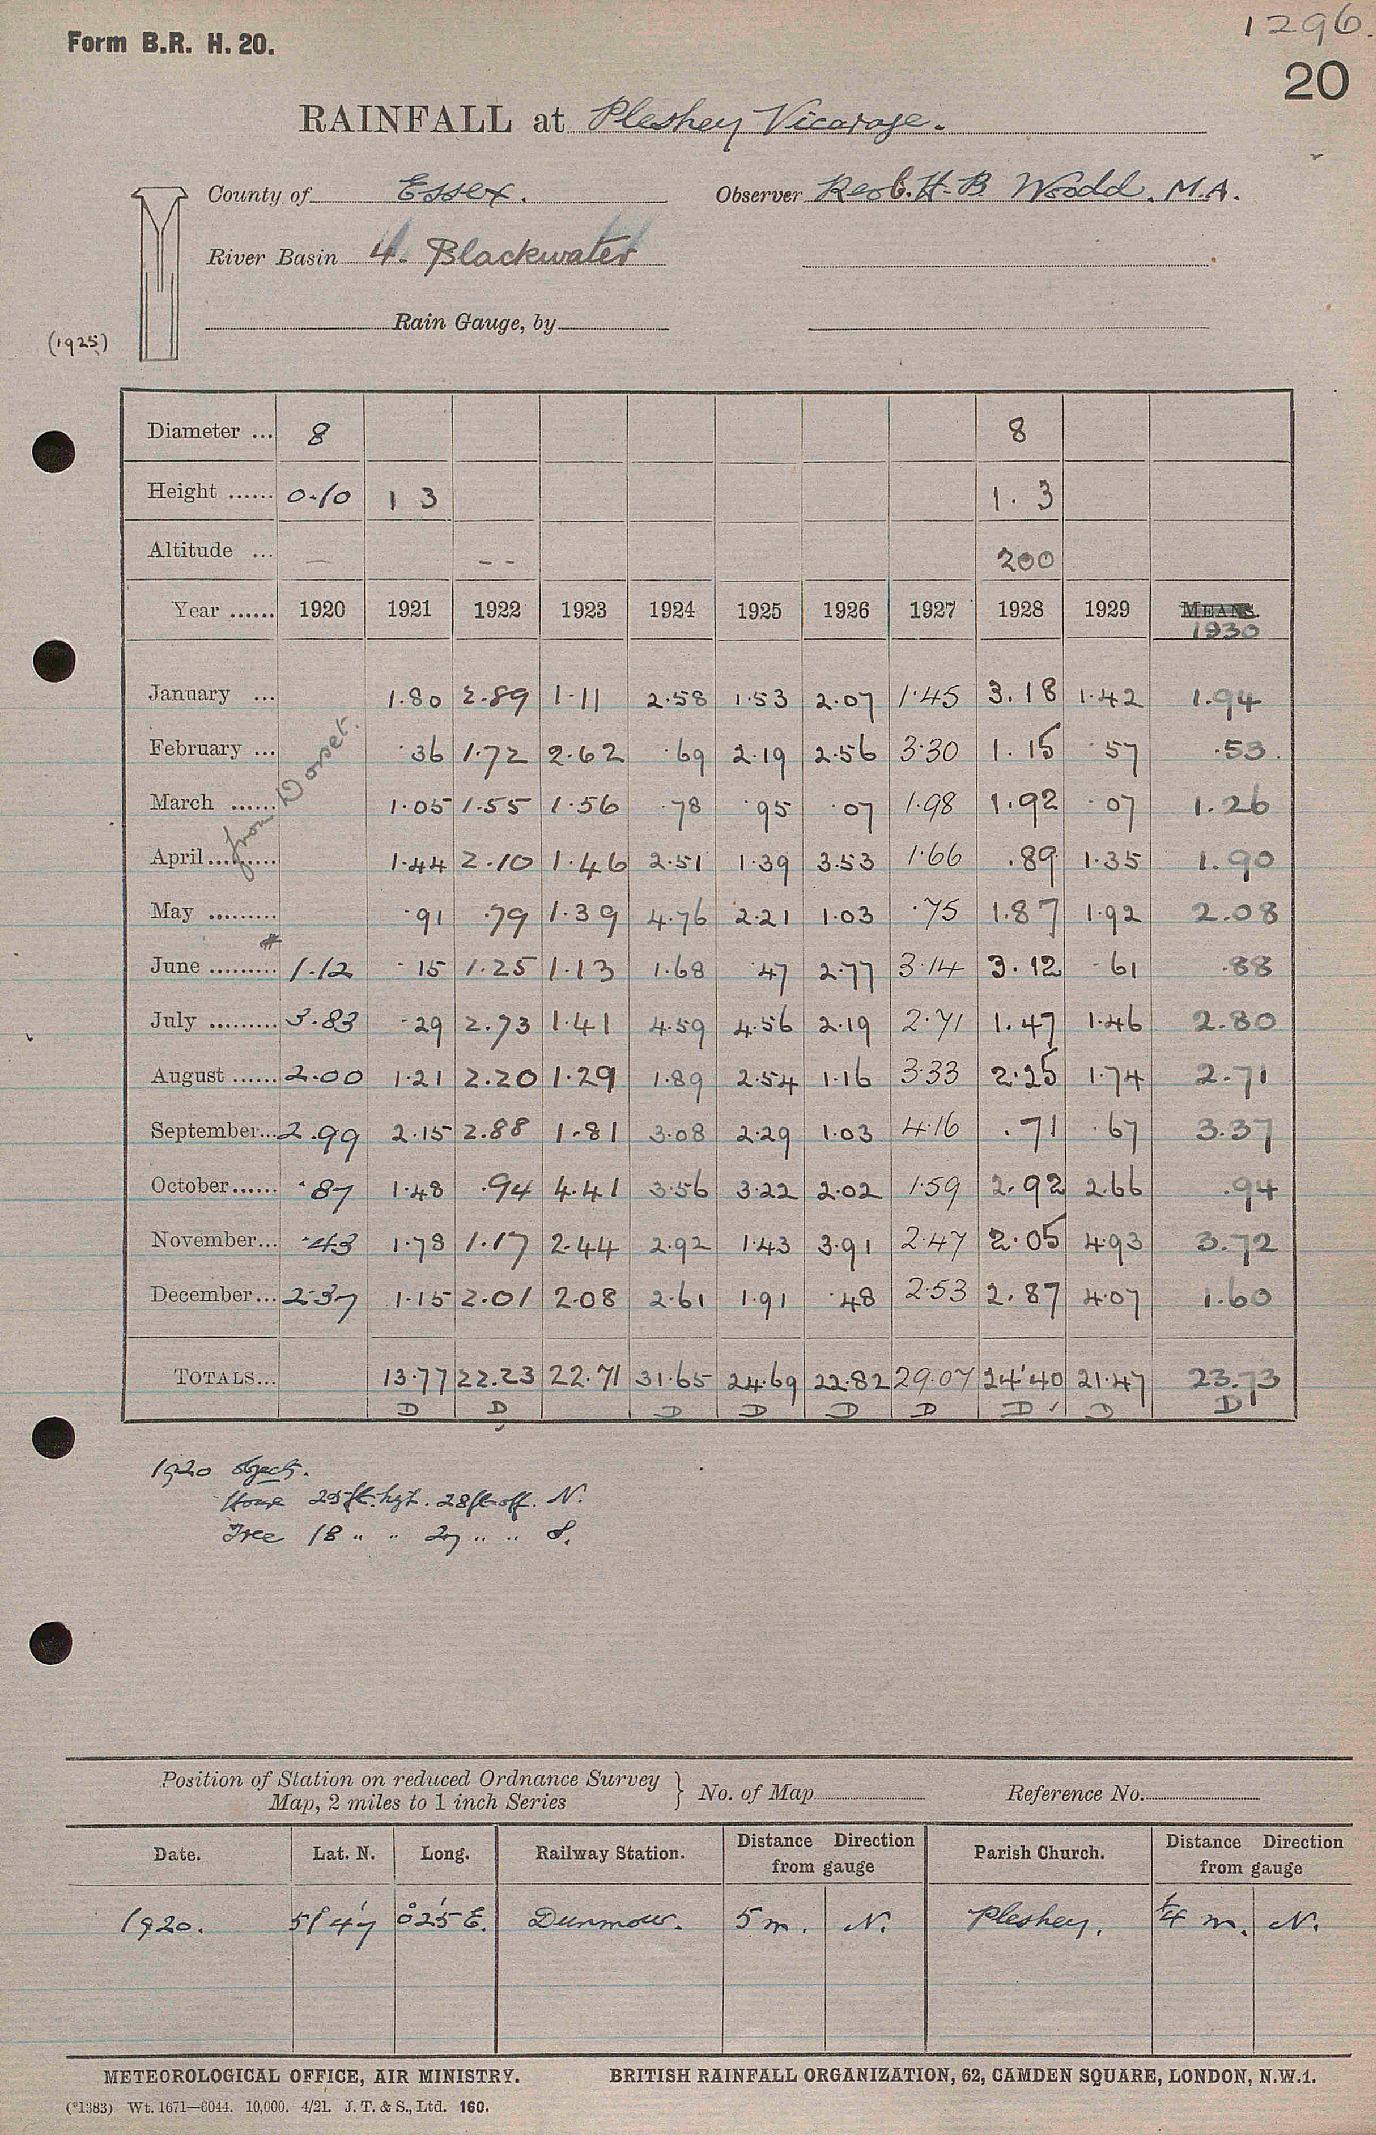 1296.
Form B.R. H. 20.
20
RAINFALL at Pleshey Vicarage.
County of Essex. Observer Rev C. H. B Woodd. M.A.
River Basin 4. Blackwater
Rain Gauge, by
(1925)
Diameter ... 8 8
Height ...... 0-10 1 3 1. 3
Altitude ... — - - 200
Year ...... 1920 1921 1922 1923 1924 1925 1926 1927 1928 1929 MEANS.
1930
January ... 1.80 2.89 1.11 2.58 1.53 2.07 1.45 3.18 1.42 1.94
February ... .36 1.72 2.62 .69 2.19 2.56 3.30 1.15 .57 .53
March ...... 1.05 1.55 1.56 .78 .95 .07 1.98 1.92 .07 1.26
April ......... 1.44 2.10 1.46 2.51 1.39 3.53 1.66 .89 1.35 1.90
from Dorset.
May ......... .91 .79 1.39 4.76 2.21 1.03 .75 1.87 1.92 2.08
June ......... 1.12 .15 1.25 1.13 1.68 .47 2.77 3.14 3.12 .61 .88
July ......... 3.83 .29 2.73 1.41 4.59 4.56 2.19 2.71 1.47 1.46 2.80
August ...... 2.00 1.21 2.20 1.29 1.89 2.54 1.16 3.33 2.25 1.74 2.71
September... 2.99 2.15 2.88 1.81 3.08 2.29 1.03 4.16 .71 .67 3.37
October...... .87 1.48 .94 4.41 3.56 3.22 2.02 1.59 2.92 2.66 .94
November... .43 1.78 1.17 2.44 2.92 1.43 3.91 2.47 2.05 4.93 3.72
December... 2.37 1.15 2.01 2.08 2.61 1.91 .48 2.53 2.87 4.07 1.60
TOTALS... 13.77 22.23 22.71 31.65 24.69 22.82 29.07 24.40 21.47 23.73
D D D D D D D ✓ D D
1920 objects.
House 25 ft. hgt. 28 ft off. N.
Tree 18 " " 27 " " S.
Position of Station on reduced Ordnance Survey
Map, 2 miles to 1 inch Series } No. of Map Reference No.
Date. Lat. N. Long. Railway Station. Distance Direction from gauge Parish Church. Distance Direction from gauge
1920. 51° 47' 0° 25' E. Dunmow. 5 m. N. Pleshey. ¼ m. N.
METEOROLOGICAL OFFICE, AIR MINISTRY. BRITISH RAINFALL ORGANIZATION, 62, CAMDEN SQUARE, LONDON, N.W.1.
(*1383) Wt. 1671—6044. 10,000. 4/21. J. T. & S., Ltd. 160.